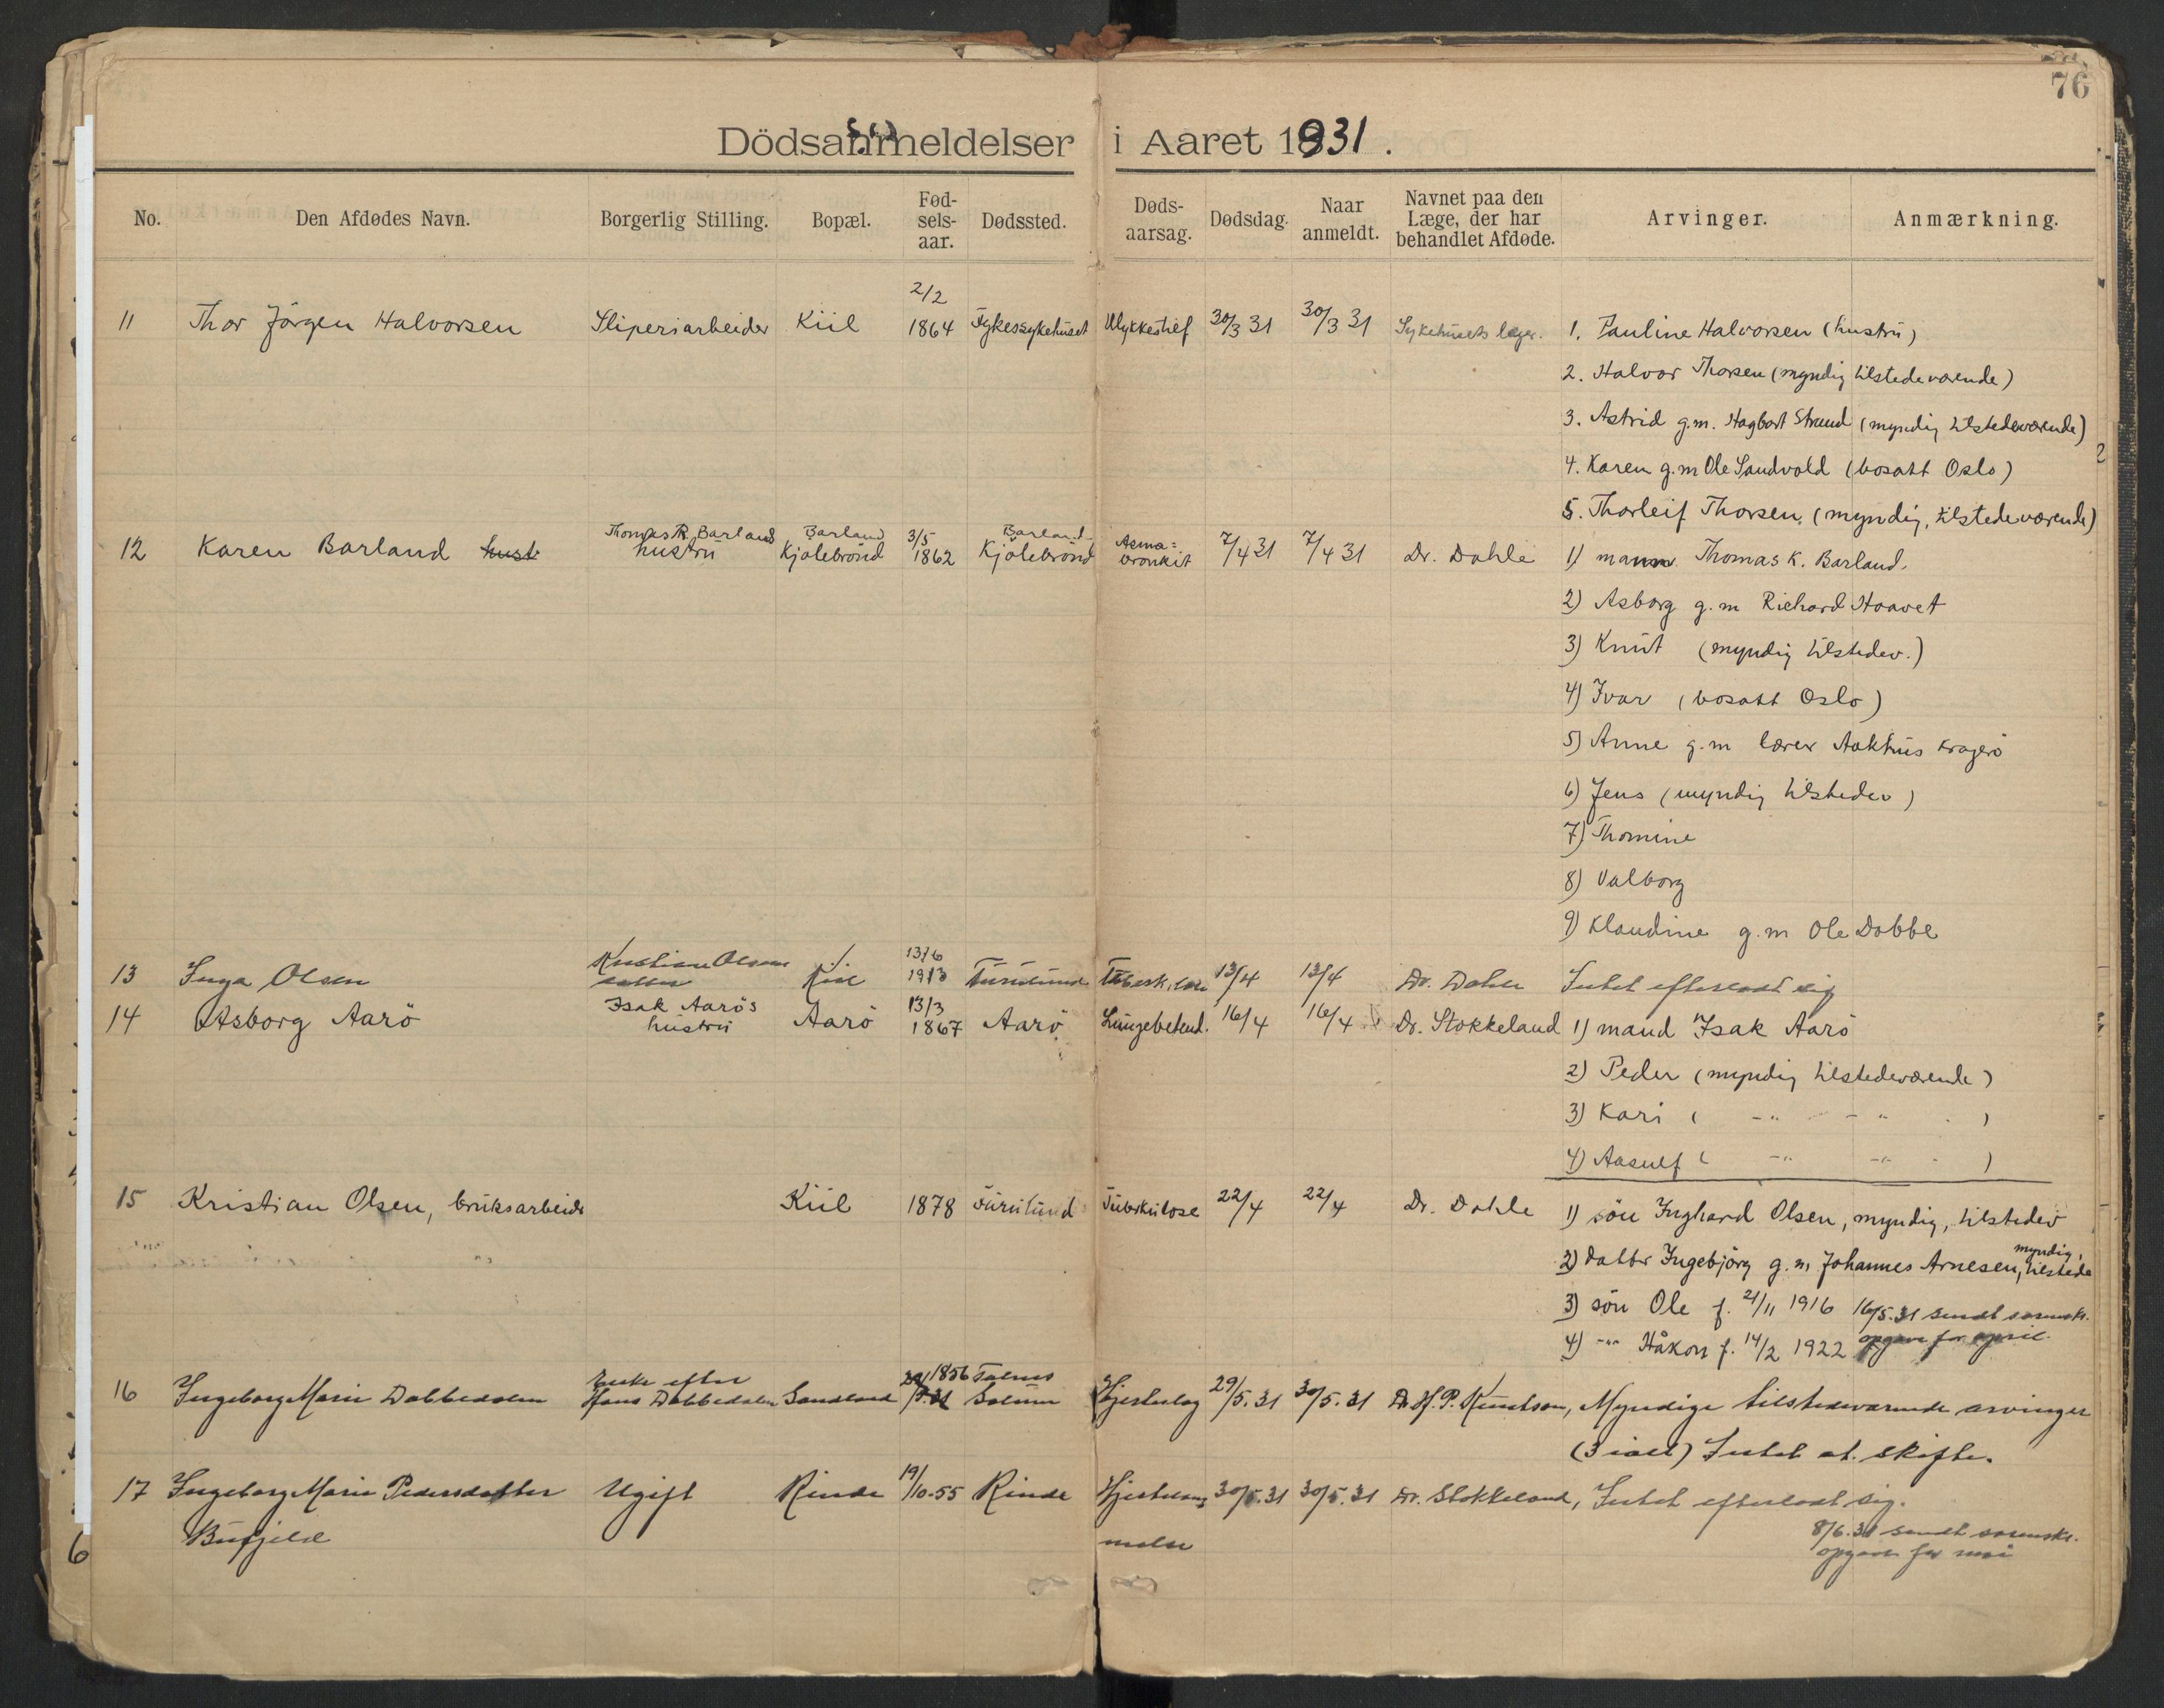 76
Dödsanmeldelser i Aaret 1931.
No. Den Afdødes Navn. Borgerlig Stilling. Bopæl. Fød-sels-aar. Dødssted. Døds-aarsag. Dødsdag. Naar anmeldt. Navnet paa den Læge, der har behandlet Afdøde. Arvinger. Anmærkning.
11 Thor Jörgen Halvorsen Sliperiarbeider Kiil 2/2 1864 Fylkessykehuset Ulykkestilf 30/3 31 30/3 31 Sykehusets læger. 1. Pauline Halvorsen (hustru)
2. Halvor Thorsen (myndig tilstedeværende)
3. Astrid g.m. Hagbart Strand (myndig tilstedeværende)
4. Karen g.m Ole Sandvold (bosatt Oslo)
5. Thorleif Thorsen, (myndig, tilstedeværende)
12 Karen Barland hust Thomas K. Barland hustru Barland Kjölebrönd 3/5 1862 Barland Kjölebrönd Asma= bronkit 7/4 31 7/4 31 Dr. Dahle 1) mann Thomas K. Barland.
2) Asborg g.m Richard Haavet
3) Knut (myndig tilstedev.)
4) Ivar (bosatt Oslo)
5) Anne g.m lærer Aakhus Kragerö
6) Jens (myndig tilstedev)
7) Thomine
8) Valborg
9) Klaudine g.m Ole Dobbe
13 Inga Olsen Kristian Olsens datter Kiil 13/6 1913 Furulund Tuberkulose 13/4 13/4 Dr. Dahle Intet efterladt sig
14 Asborg Aarö Isak Aarös hustru Aarö 13/3 1867 Aarö Lungebetend. 16/4 16/4 Dr. Stokkeland 1) mand Isak Aarö
2) Peder (myndig tilstedeværende)
3) Kari ( -"- -"- )
4) Aasulf ( -"- -"- )
15 Kristian Olsen, bruksarbeide Kiil 1878 Furulund Tuberkulose 22/4 22/4 Dr. Dahle 1) sön Inghard Olsen, myndig, tilstedev
2) datter Ingebjörg g.m Johannes Arnesen, myndig, tilstede
3) sön Ole f. 21/11 1916 16/5.31 sendt sorensk.
4) -"- Håkon f. 14/2 1922 opgave for april.
16 Ingeborg Marie Dobbedalen Enke efter Hans Dobbedalen Sandland 1856 Solum Hjerteslag 29/5.31 30/5.31 Dr. H. P. Knudsen, Myndige tilstedeværende arvinger
(3 ialt) Intet at skifte.
17 Ingeborg Marie Pedersdatter Ugift Rinde 19/10.55 Rinde Hjertelam- 30/5.31 30/5.31 Dr. Stokkeland, Intet efterladt sig.
Bufjeld melse 8/6.31 sendt sorensk.
opgave for mai
6